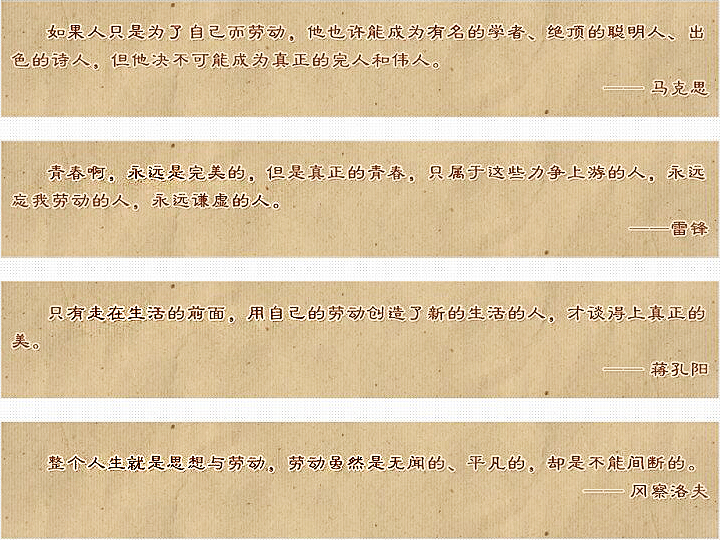 如果人只是为了自己而劳动，他也许能成为有名的学者、绝顶的聪明人、出
色的诗人，但他决不可能成为真正的完人和伟人。
—— 马克思
青春啊，永远是完美的，但是真正的青春，只属于这些力争上游的人，永远
忘我劳动的人，永远谦虚的人。
——雷锋
只有走在生活的前面，用自己的劳动创造了新的生活的人，才谈得上真正的
美。
—— 蒋孔阳
整个人生就是思想与劳动，劳动虽然是无闻的、平凡的，却是不能间断的。
—— 冈察洛夫